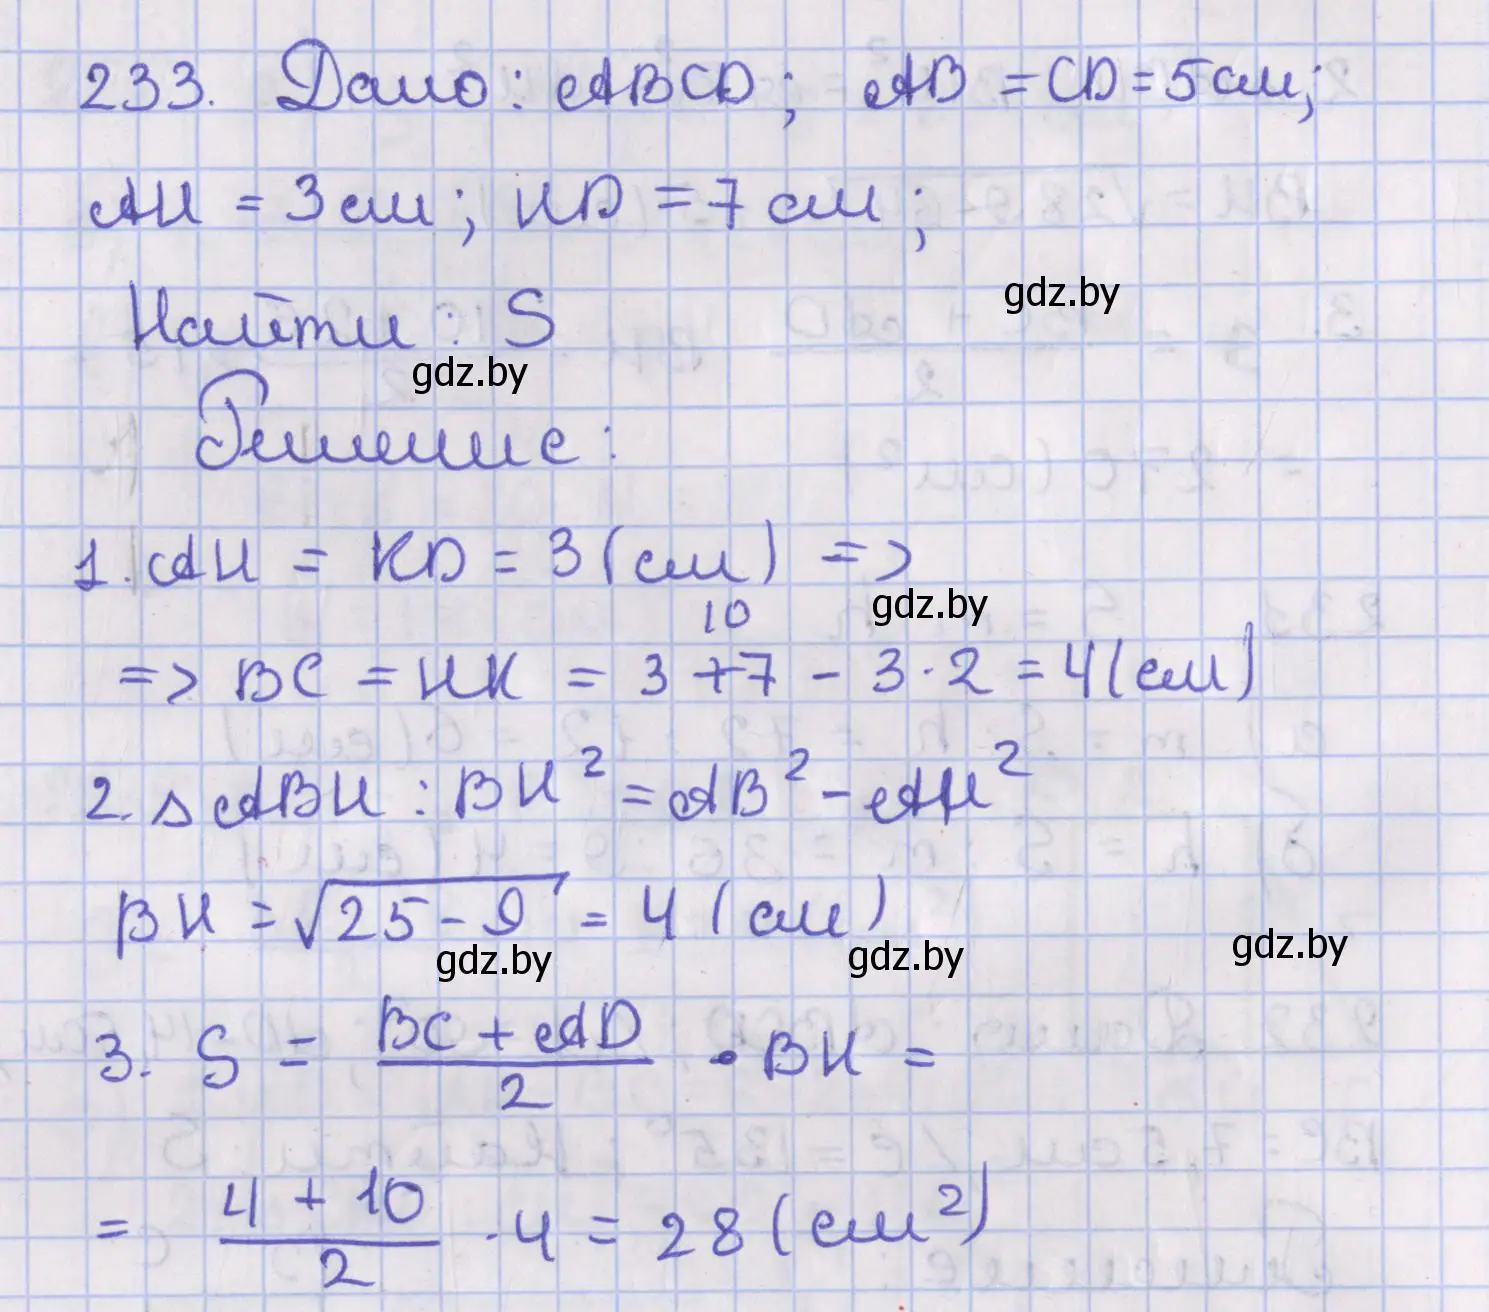 233. Дано: ABCD; AB = CD = 5 см;
AH = 3 см; HD = 7 см;
gdz.by
Найти: S
gdz.by
Решение:
1. AH = KD = 3 (см) =>
gdz.by
10
=> BC = HK = 3 + 7 - 3 · 2 = 4 (см)
2. △ ABH : BH² = AB² - AH²
BH = √25 - 9 = 4 (см)
gdz.by gdz.by gdz.by
3. S = (BC + AD)/2 · BH =
= (4 + 10)/2 · 4 = 28 (см²)